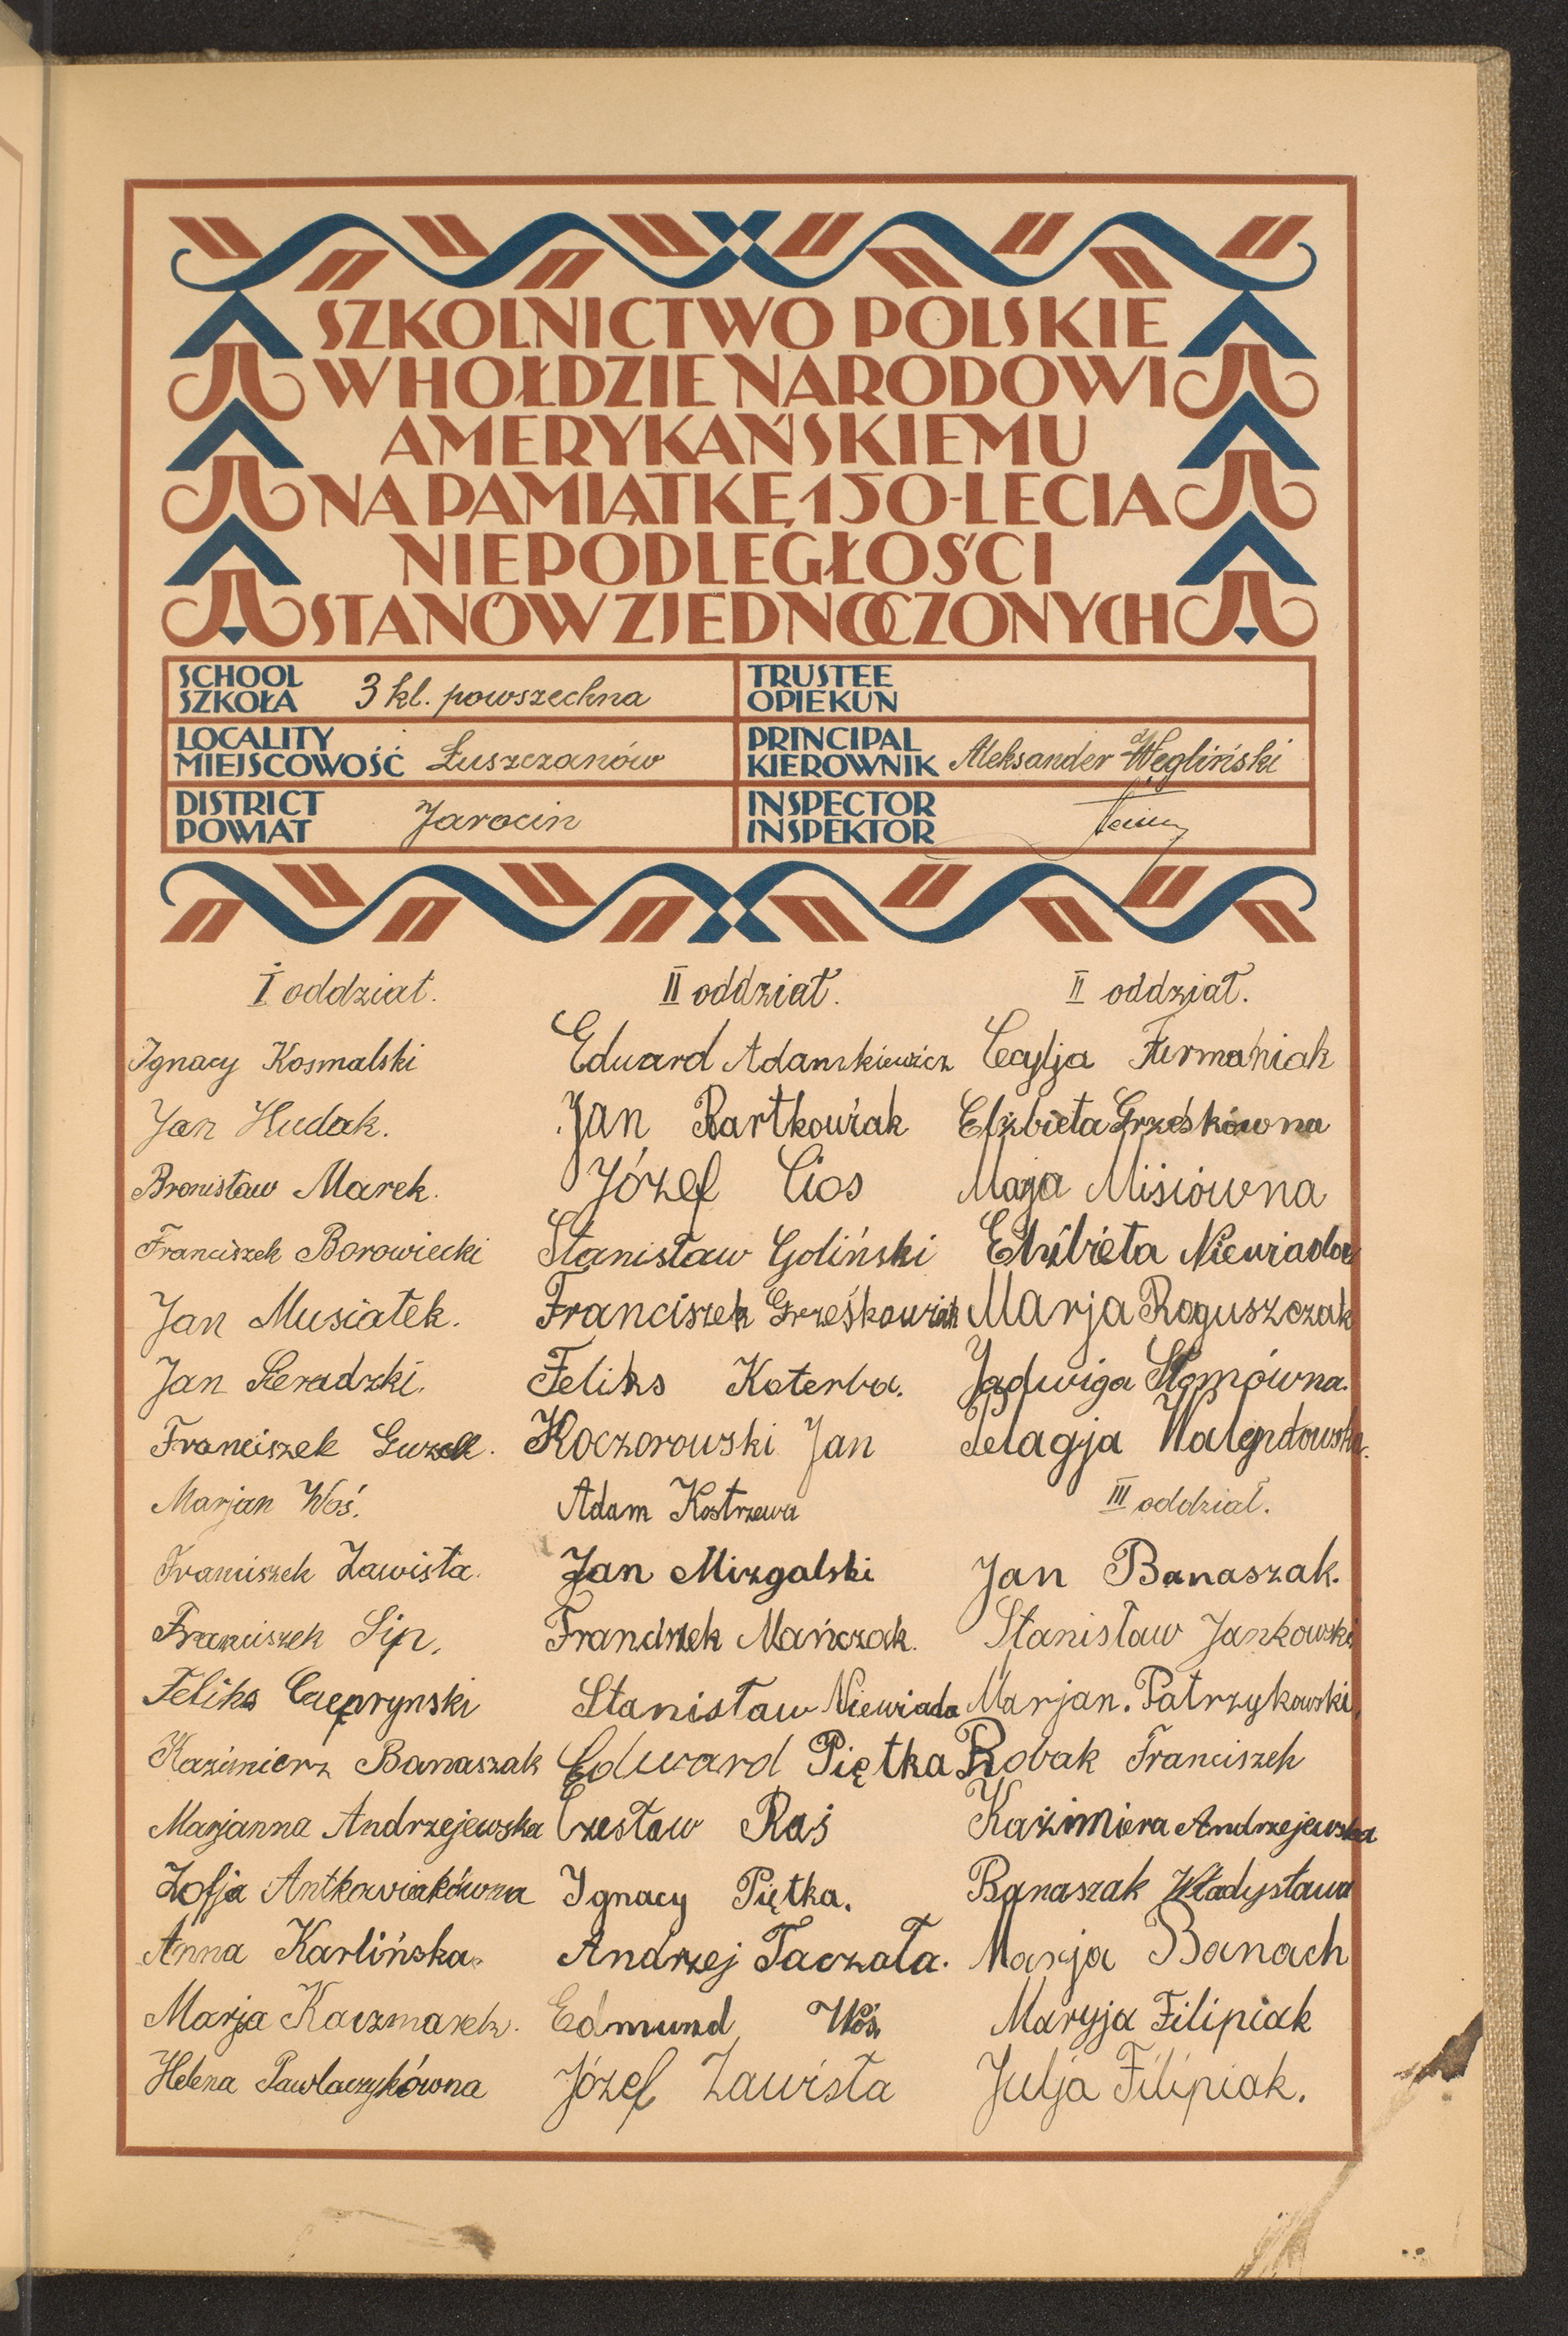 SZKOLNICTWO POLSKIE
W HOŁDZIE NARODOWI
AMERYKAŃSKIEMU
NA PAMIĄTKĘ 150-LECIA
NIEPODLEGŁOŚCI
STANÓW ZJEDNOCZONYCH
SCHOOL
SZKOŁA
3 kl. powszechna
TRUSTEE
OPIEKUN
LOCALITY
MIEJSCOWOŚĆ
Łuszczanów
PRINCIPAL
KIEROWNIK
Aleksander Węgliński
DISTRICT
POWIAT
Jarocin
INSPECTOR
INSPEKTOR
I oddział.
Ignacy Kosmalski
Jan Hudak.
Bronisław Marek.
Franciszek Borowiecki
Jan Musiałek.
Jan Sieradzki.
Franciszek Guzek.
Marjan Woś.
Franciszek Zawista.
Franciszek Sip.
Feliks
Kazimierz Banaszak
Marjanna Andrzejewska
Zofja Antkowiakówna
Anna Karlińska.
Marja Kaczmarek.
Helena Pawlaczykówna
II oddział.
Eduard Adamkiewicz
Jan Bartkowiak
Józef Cios
Stanisław Goliński
Franciszek Grześkowiak
Feliks Koterba.
Koczorowski Jan
Adam Kostrzewa
Jan Mizgalski
Franciszek Mańczak.
Stanisław Niewiada
Edward Piętka
Czesław Raś
Ignacy Piętka.
Andrzej Taczała.
Edmund Woś
Józef Zawista
II oddział.
Cecylja Furmaniak
Elżbieta Grześkówna
Maja Misiówna
Elżbieta Niewiada
Marja Roguszczak
Jadwiga Słomówna.
Pelagja Walendowska.
III oddział.
Jan Banaszak.
Stanisław Jankowski
Marjan. Patrzykowski.
Robak Franciszek
Kazimiera Andrzejewska
Banaszak Władysława
Marja Banach
Maryja Filipiak
Julja Filipiak.